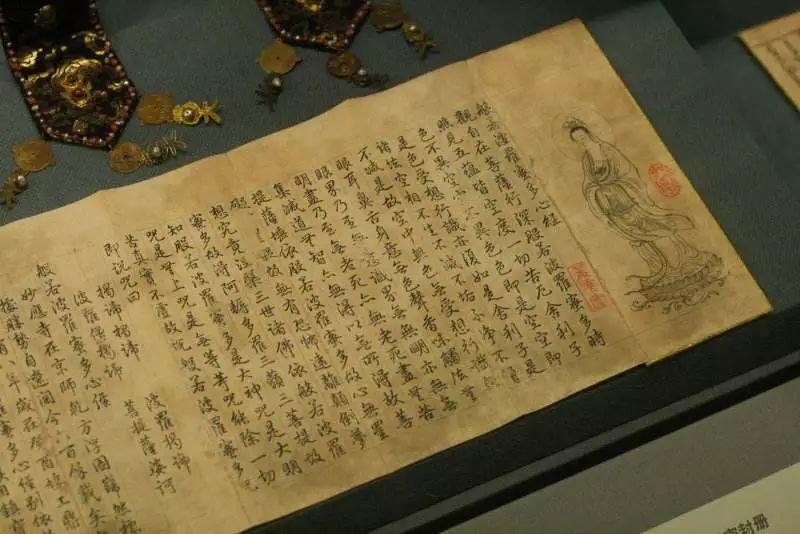 般若波羅蜜多心經
觀自在菩薩行深般若波羅蜜多時
照見五蘊皆空度一切苦厄舍利子
色不異空空不異色色即是空空即
是色受想行識亦復如是舍利子是
諸法空相不生不滅不垢不淨不增
不減是故空中無色無受想行識無
眼耳鼻舌身意無色聲香味觸法無
眼界乃至無意識界無無明亦無無
明盡乃至無老死亦無老死盡無苦
集滅道無智亦無得以無所得故菩
提薩埵依般若波羅蜜多故心無罣
礙無罣礙故無有恐怖遠離顛倒夢
想究竟涅槃三世諸佛依般若波羅
蜜多故得阿耨多羅三藐三菩提故
知般若波羅蜜多是大神咒是大明
咒是無上咒是無等等咒能除一切
苦真實不虛故說般若波羅蜜多咒
即說咒曰
揭諦揭諦 波羅揭諦
波羅僧揭諦 菩提薩婆訶
般若波羅蜜多心經
妙應寺在京師
封册